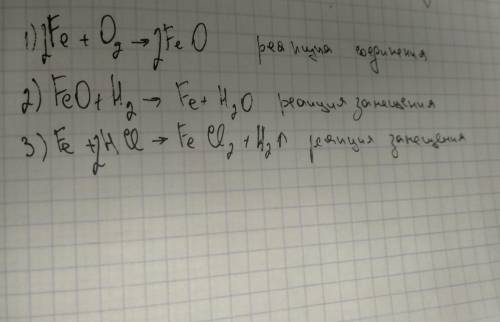 1) 2Fe + O2 → 2FeO реакция соединения
2) FeO + H2 → Fe + H2O реакция замещения
3) Fe + 2HCl → FeCl2 + H2↑ реакция замещения